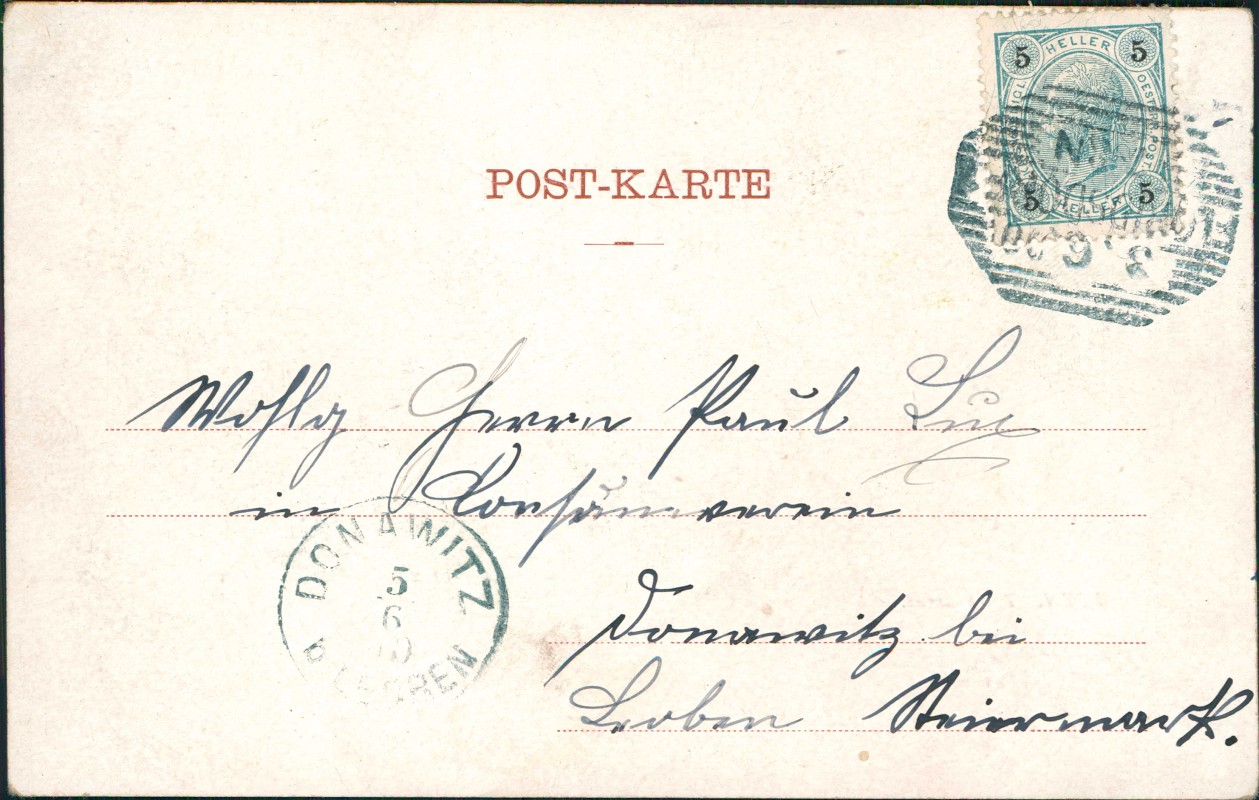 5 HELLER 5
OESTERR. POST.
5 HELLER 5
POST-KARTE
Wohlg Herrn Paul Lux
in Konsumverein
DONAWITZ
5
6
Donawitz bei
Leoben Steiermark.